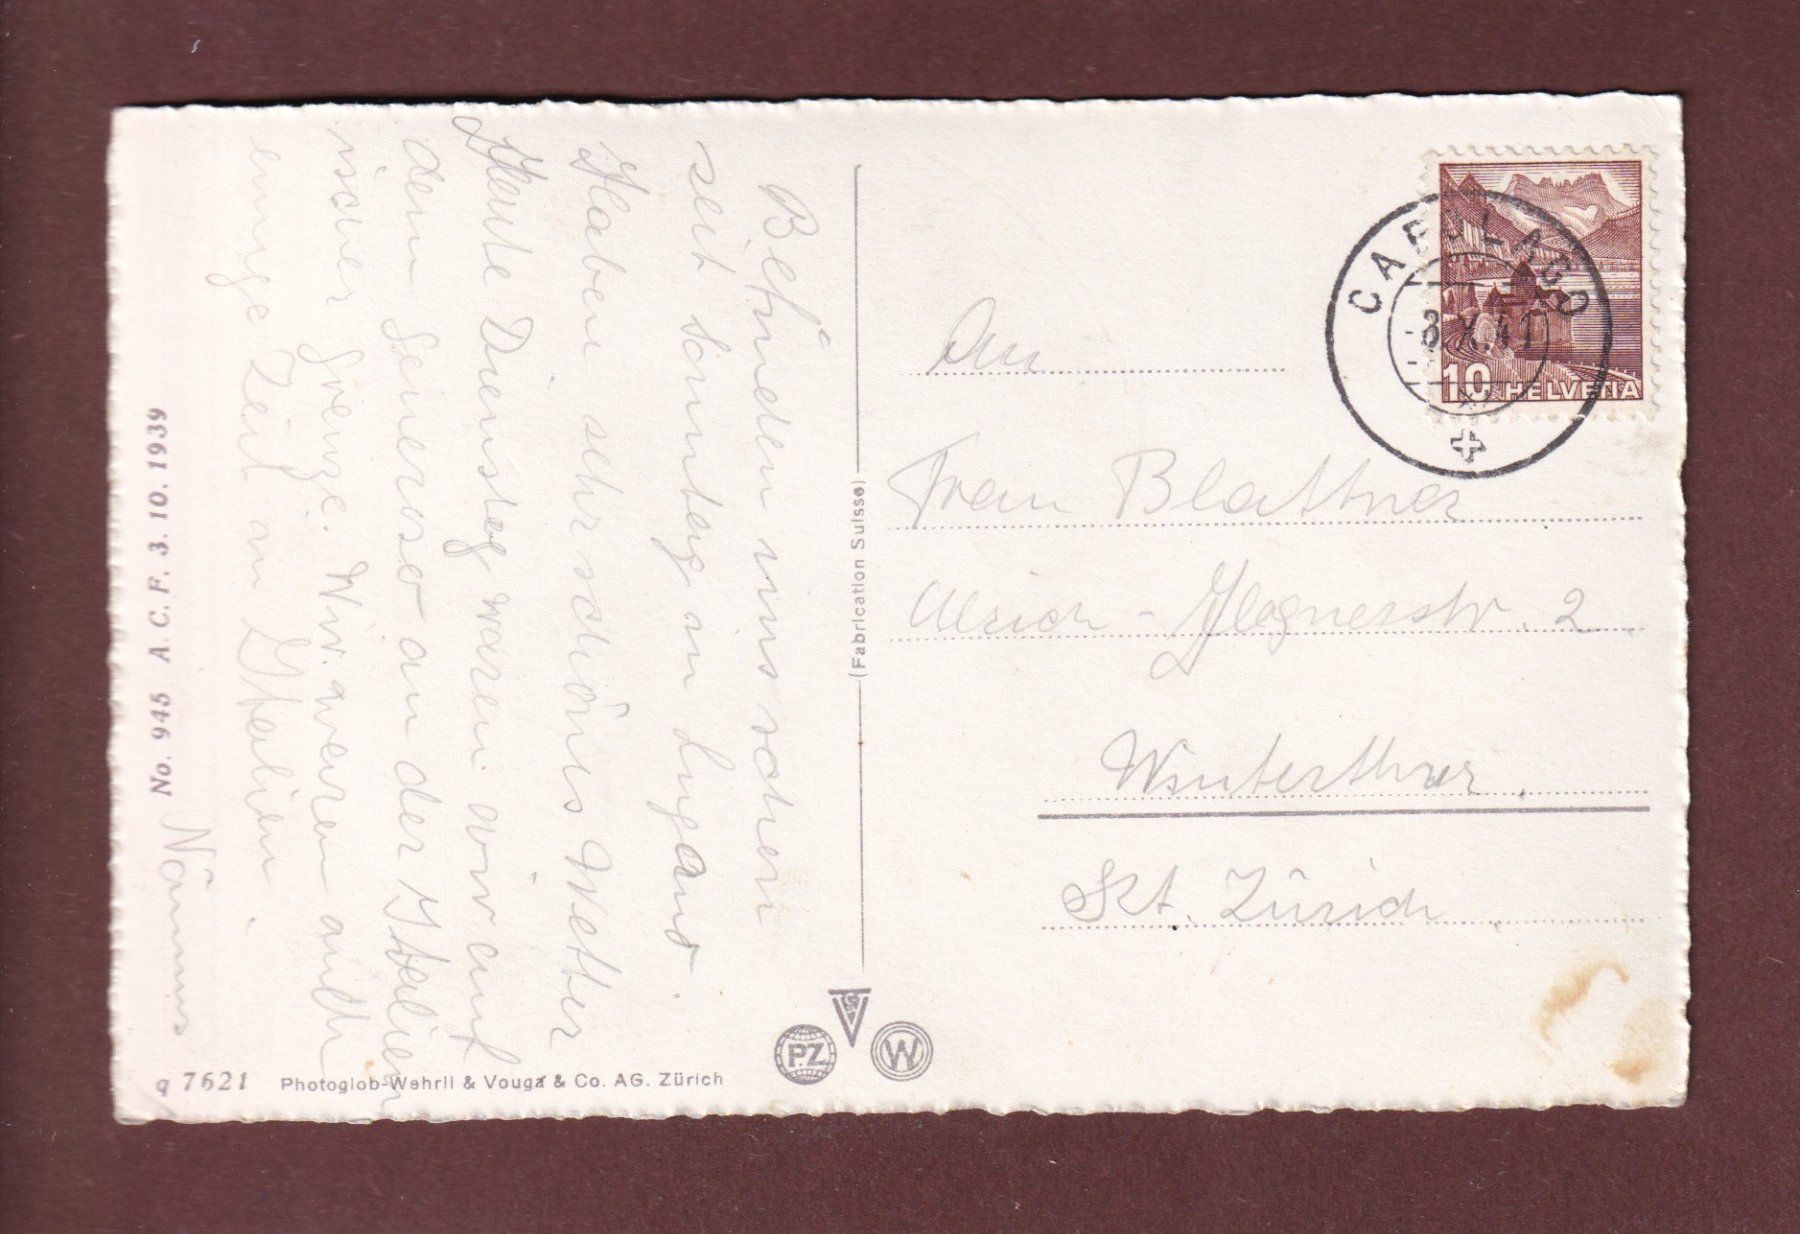 Befinden uns schon
seit Sonntag in Lugano.
Haben sehr schönes Wetter
Heute Dienstag waren wir auf
dem Generoso an der Italien
ischer Grenze. Wir waren auch
einige Zeit in Italien.
No. 945 A. C. F. 3. 10. 1939
7621
Photoglob-Wehrli & Vouga & Co. AG. Zürich
P.Z.
W
(Fabrication Suisse)
CAPOLAGO
-8.X.41
10 HELVETIA
An
Frau Blattner
Ulrich-
2
Winterthur.
Kt. Zürich